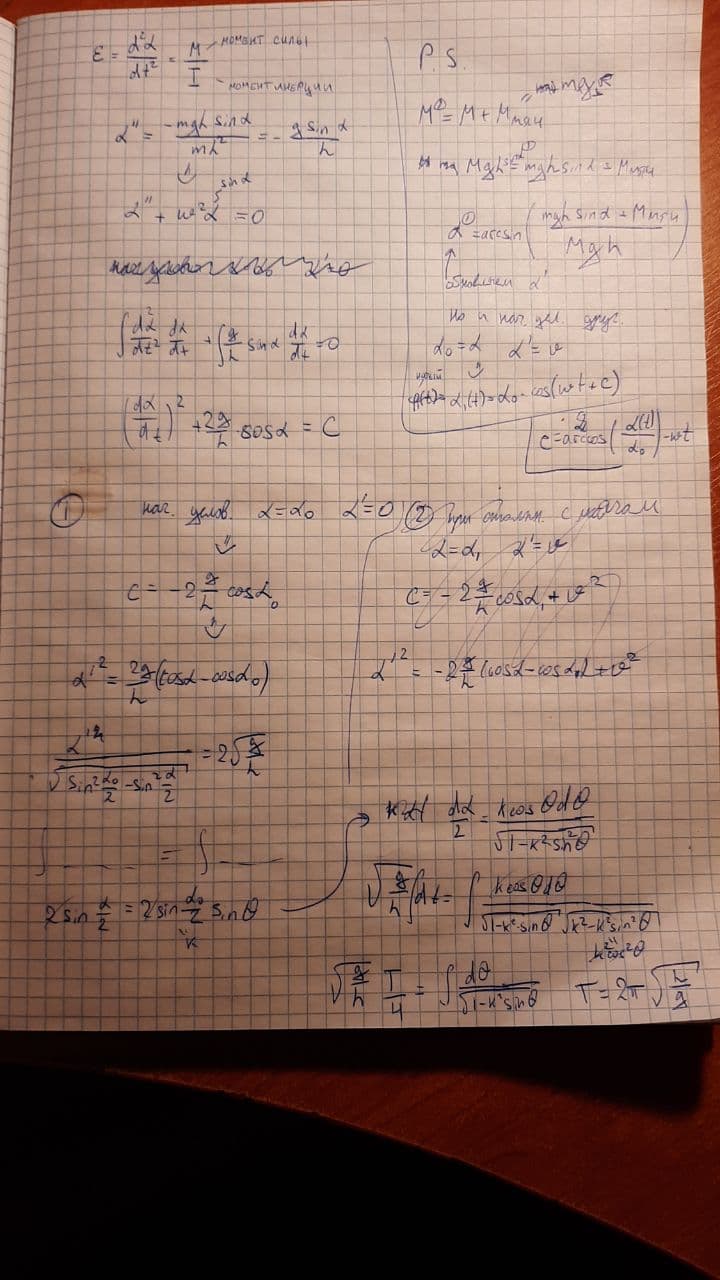 ε = d²α/dt² = M/I — момент силы
— момент инерции
α'' = -mgh sinα / mh² = - g sinα / h
sinα
α'' + w²α = 0
∫ d²α/dt² dα/dt + ∫ g/h sinα dα/dt = 0
(dα/dt)² + 2g/h · cosα = C
P.S.
M① = M + Mмяч
Mgh sinα① = mgh sinα + Mмяч
α① = arcsin( (mgh sinα + Mмяч) / Mgh )
обновляем α'
Но и нач. усл. друг.
α₀ = α α' = v
α₁(t) = α₀ · cos(wt + c)
c = arccos( α(t)/α₀ ) - wt
① нач. услов. α = α₀ α' = 0
C = -2 g/h cosα₀
α'² = 2g/h (cosα - cosα₀)
α' / √(sin² α₀/2 - sin² α/2) = 2√(g/h)
∫ ___ = ∫ ___
2 sin α/2 = 2 sin α₀/2 sinθ
k
② При с мячом
α = α₁ α' = v
C = -2 g/h cosα₁ + v²
α'² = -2 g/h (cosα - cosα₁) + v²
dα/2 = k cosθ dθ / √(1 - k² sin²θ)
√(g/h) ∫dt = ∫ k cosθ dθ / √(1 - k² sinθ) √(k² - k² sin²θ)
k² cos²θ
√(g/h) T/4 = ∫ dθ / √(1 - k² sinθ) T = 2π √(h/g)